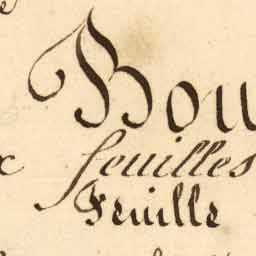 Bou
feuilles
Feuille